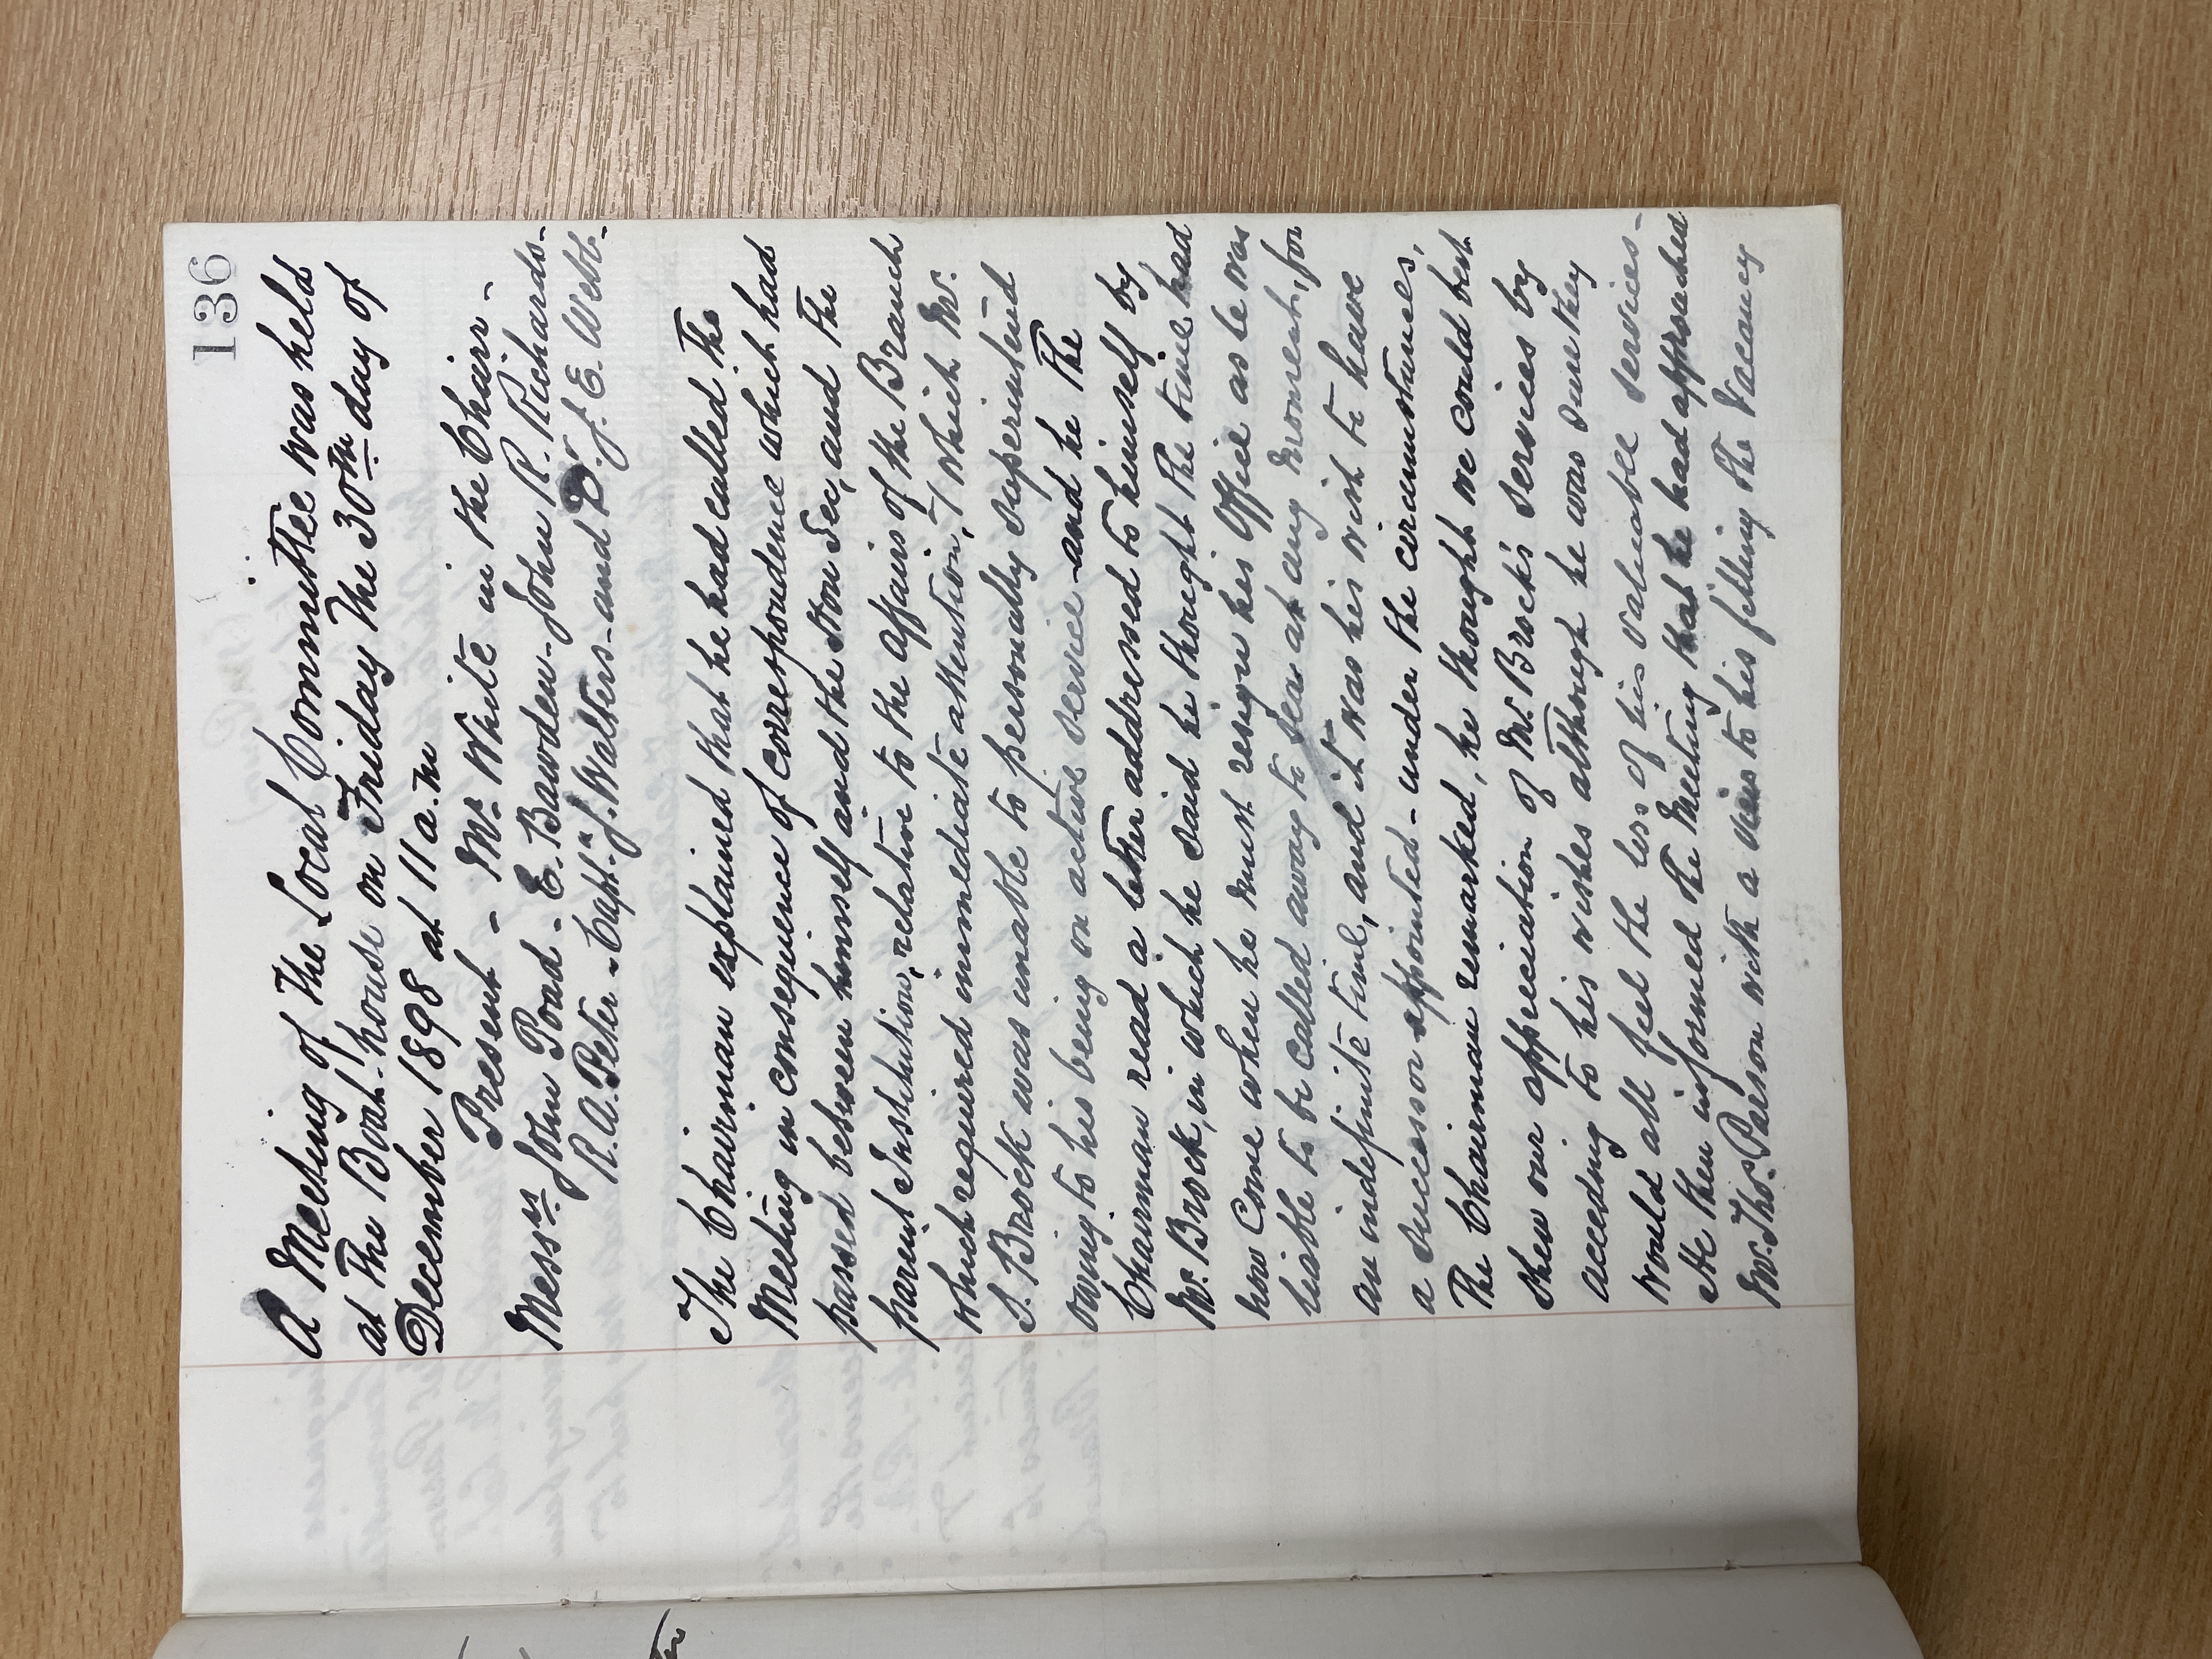 136
A Meeting of the Local Committee was held
at the Boat-house on Friday the 30th day of
December 1898 at 11 a.m
Present - Mr. White in the Chair -
Messrs John Poad - E. Bawden - John R. Richards -
R. A. Peter - Capt. J. Walters - and Dr. J. E. Webb -
The Chairman explained that he had called the
Meeting in consequence of correspondence which had
passed between himself and the Hon Sec, and the
parent Institution, relative to the affairs of the Branch
which required immediate attention, & which Mr.
S. Brock was unable to personally superintend
owing to his being on active service - and he the
Chairman read a letter addressed to himself by
Mr. Brock, in which he said he thought the time had
now come when he must resign his Office as he was
liable to be called away to sea at any moment, for
an indefinite time, and it was his wish to have
a successor appointed - under the circumstances,
The Chairman remarked, he thought we could best
shew our appreciation of Mr. Brock's services by
acceding to his wishes although he was sure they
would all feel the loss of his valuable services -
He then informed the Meeting that he had approached
Mr. Thos. Pearson with a view to his filling the vacancy